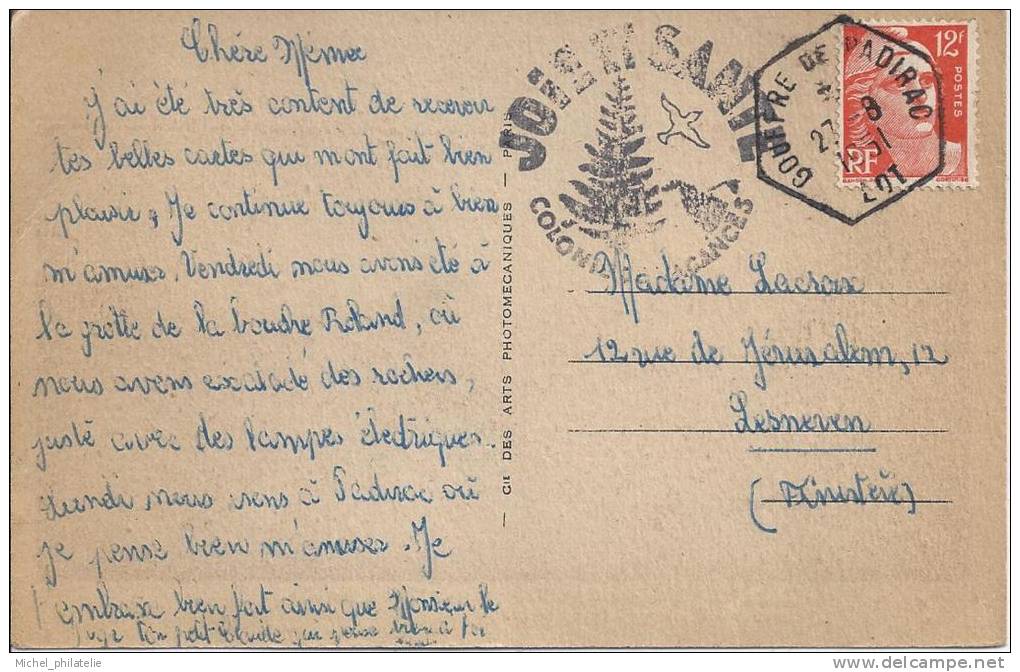 Chère Mémée
J'ai été très content de recevoir
tes belles cartes qui m'ont fait bien
plaisir, Je continue toujours à bien
m'amuser. Vendredi nous avons été à
la grotte de la boudre Roland, où
nous avons escaladé des rochers,
juste avec des lampes électriques.
Lundi nous irons à Padirac où
je pense bien m'amuser. Je
t'embrasse bien fort ainsi que Monsieur le
juge Ton petit Claude qui pense bien à toi
CIE DES ARTS PHOTOMECANIQUES — PARIS
JOIE ET SANTÉ
COLONIES VACANCES
GOUFFRE DE PADIRAC
27 8
51
LOT
12F
POSTES
RF
Madame Lacroix
12 rue de Jérusalem, 12
Lesneven
(Finistère)
Michel_philatelie
delcampe.net